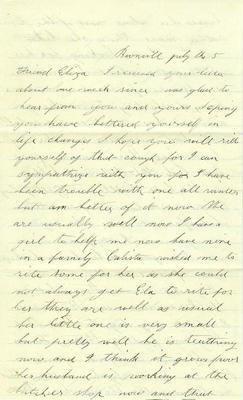 Boonville July the 5
Friend Eliza I received your letter
about one week since was glad to
hear from you and yours hoping
you have bettered yourself in
life changes I hope you will rid
yourself of that cough for I can
sympathize with you for I have
been trouble with one all winter
but am better of it now We
are usually well now I have a
girl to help me now have none
in a family Calista wished me to
rite some for her as she could
not always get Ela to rite for
her they are well as usual
her little one is very small
but pretty well he is teething
now and I think it grows poor
her husband is working at the
butcher shop now and that